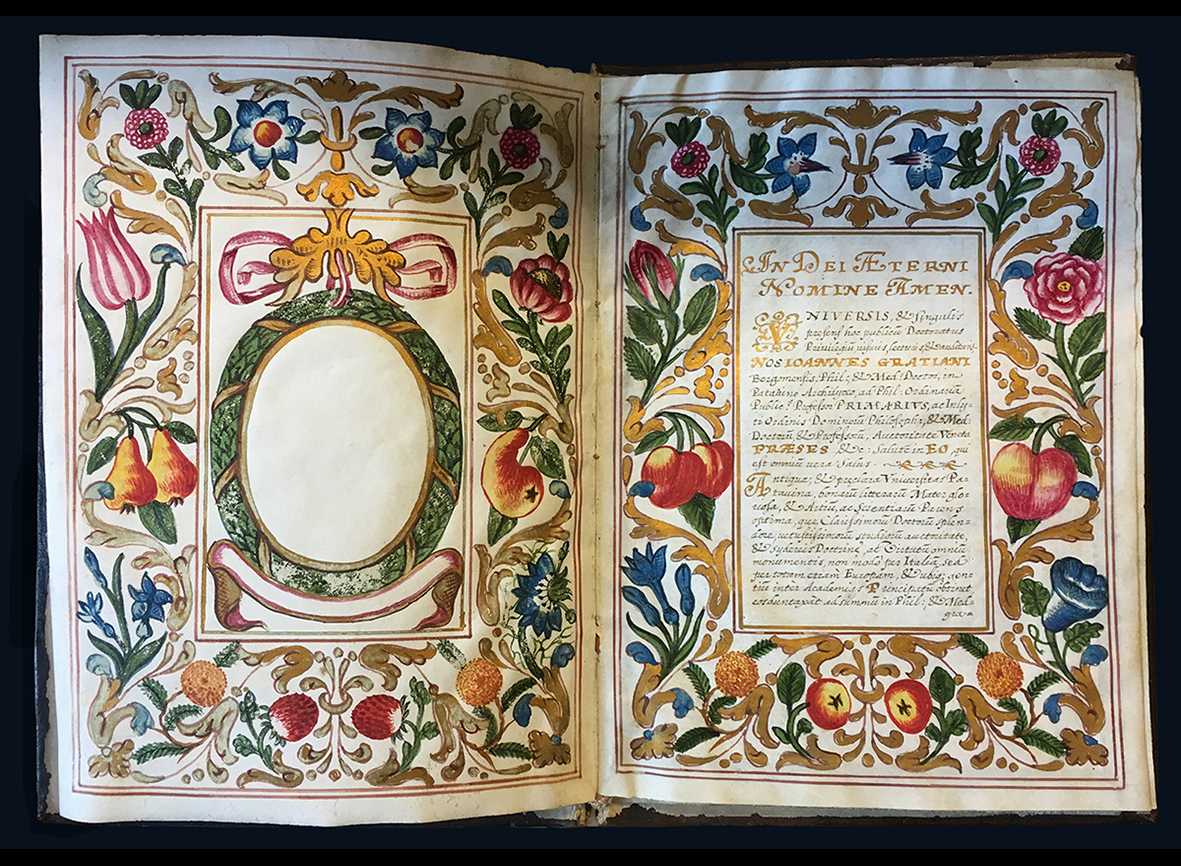 IN DEI ÆTERNI
NOMINE AMEN.
VNIVERSIS, & Singulis
præsens hoc publicū Doctoratus
Privilegiū visuris, lecturis, & audituris
NOS IOANNES GRATIANI
Bergomensis, Phil: & Med: Doctor, in
Patavino Archilyceo, ad Phil: Ordinariā
Public: Professor PRIMARIVS, ac Incly-
ti Ordinis Dominorū Philosophi: & Med:
Doctorū, & Professorū, Auctoritate Veneta
PRÆSES &c. Salutē in EO, qui
est omniū vera Salus.
Antiqua, & præclara Vniversitas Pa-
tavina, bonarū litterarū Mater glo-
riosa, & Artiū, ac Scientiarū Parens
optima, quæ Clarissimorū Doctorū splen-
dore, vetustissimorū studiorū auctoritate,
& Syderū Doctrinæ, ac Virtutū omniū
monumentis, non modo per Italiā, sed
per totam etiam Europam, & ubiq; gen-
tiū inter Academias Principatū obtinet
eos dumtaxat ad summū in Phil: & Med:
gra-